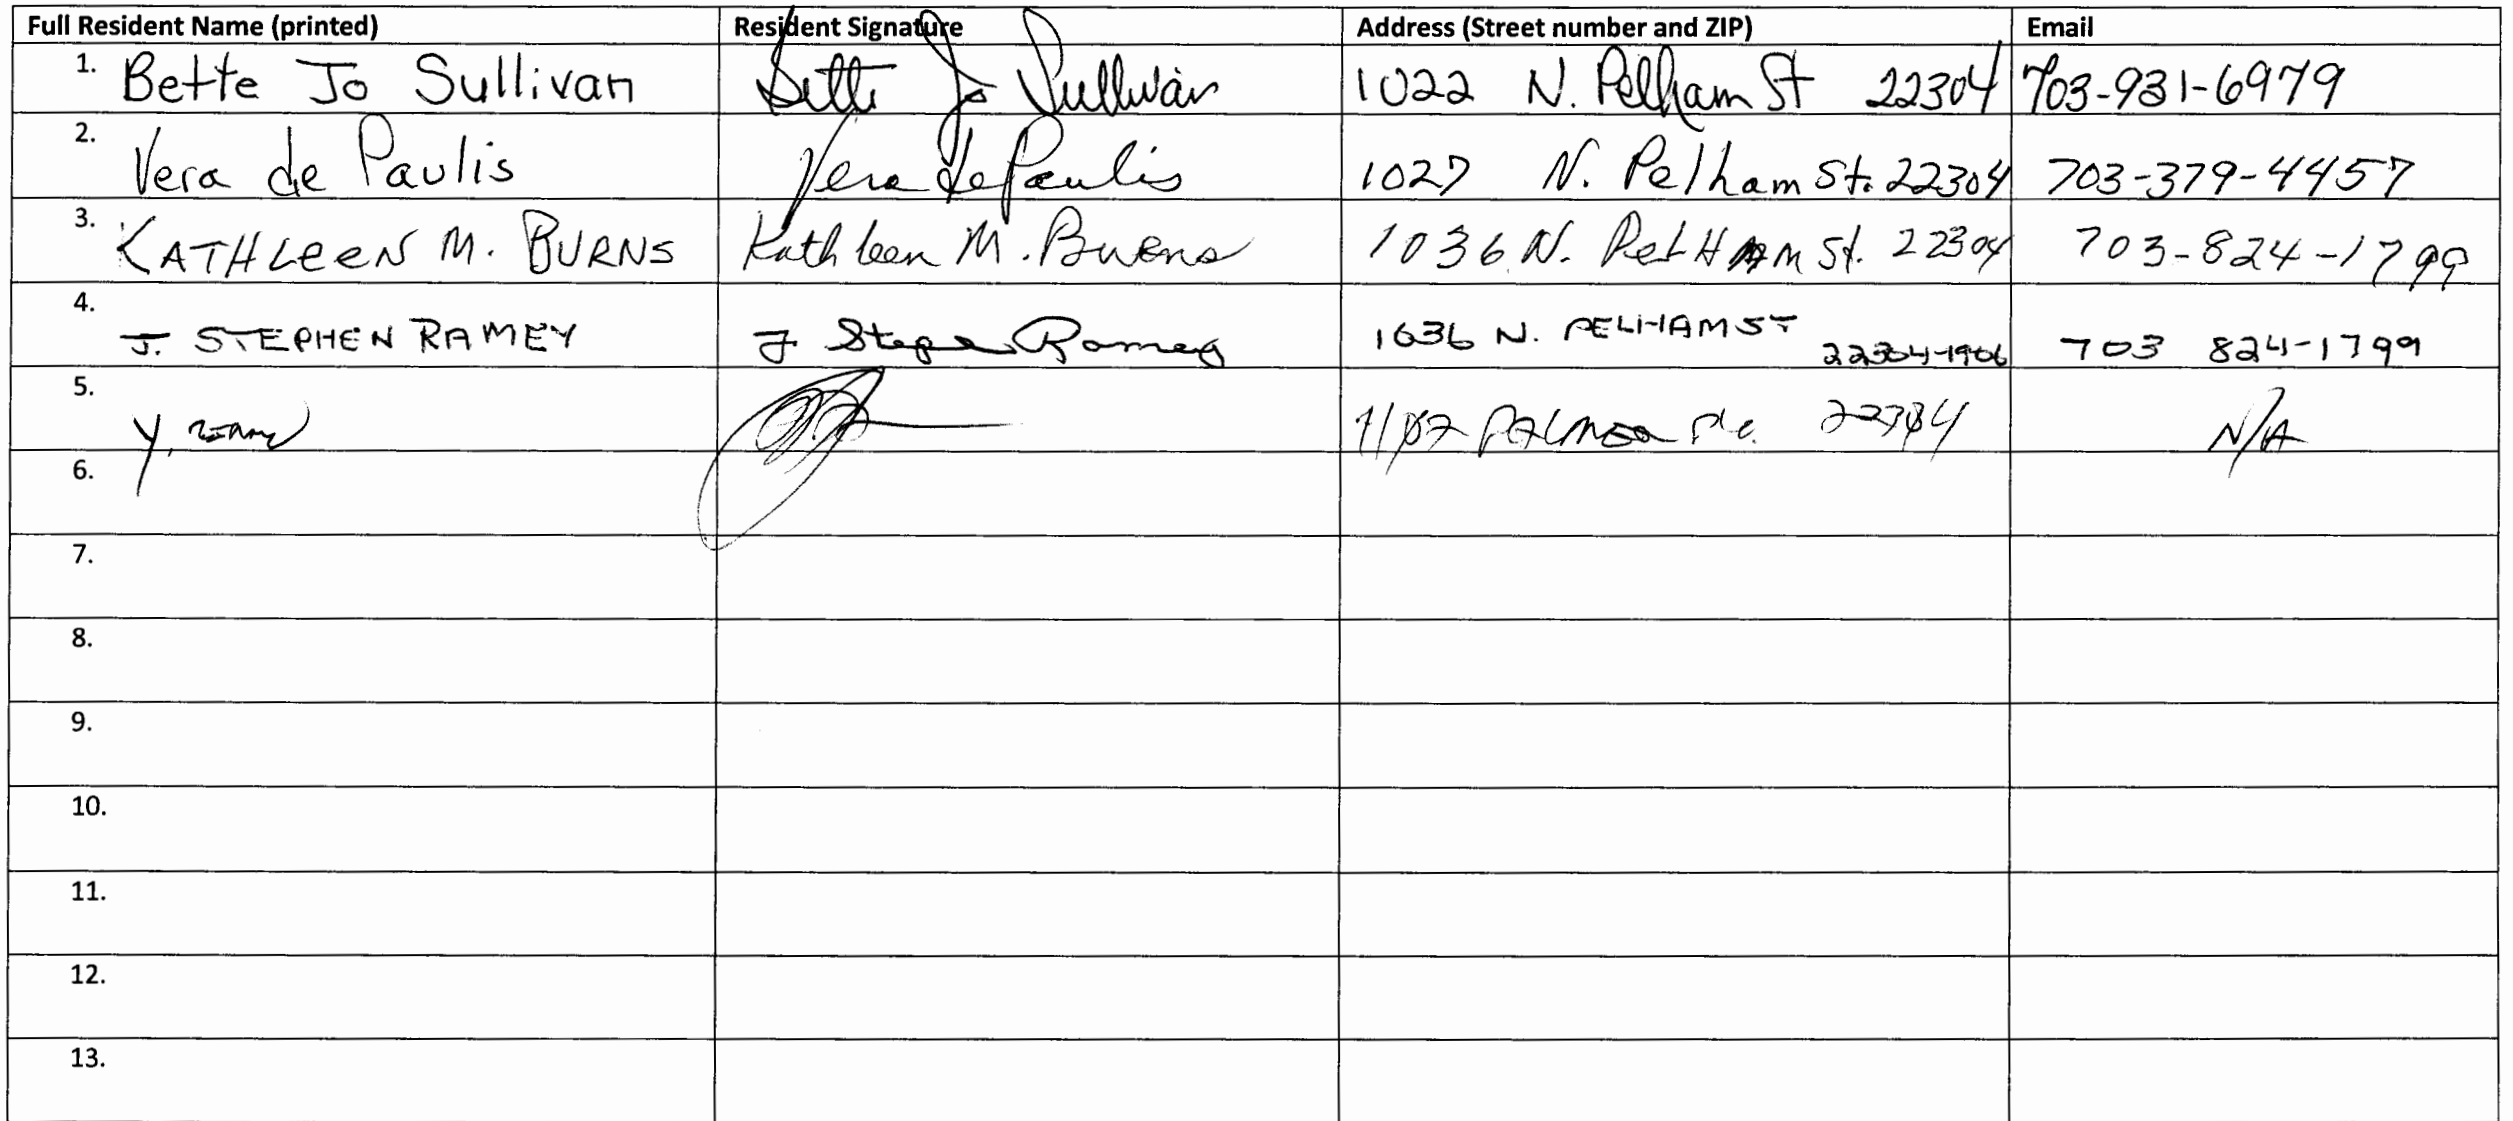 Full Resident Name (printed) Resident Signature Address (Street number and ZIP) Email
1. Bette Jo Sullivan Bette Jo Sullivan 1022 N. Pelham St 22304 703-931-6979
2. Vera de Paulis Vera de Paulis 1027 N. Pelham St. 22304 703-379-4457
3. KATHLEEN M. BURNS Kathleen M. Burns 1036 N. PELHAM St. 22304 703-824-1799
4. J. STEPHEN RAMEY J Stephen Ramey 1036 N. PELHAM ST 22304-1906 703 824-1799
5. Y. 22304 N/A
6.
7.
8.
9.
10.
11.
12.
13.